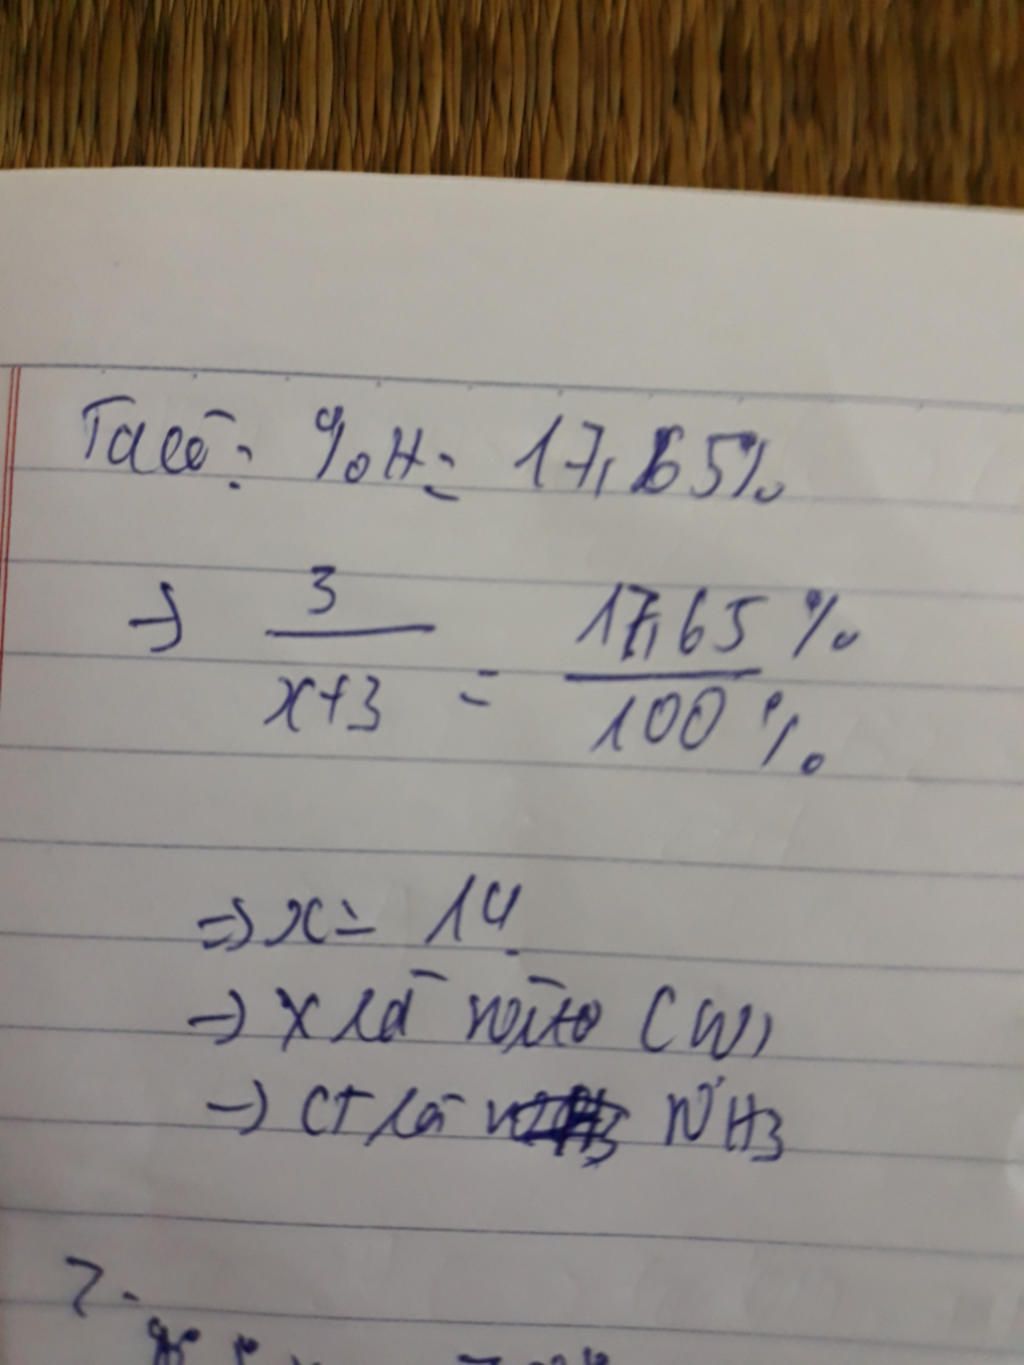 Ta có: %H = 17,65%
→ 3 / x+3 = 17,65% / 100%
⇒ x = 14
→ X là nitơ (N)
→ CT là NH3
7.